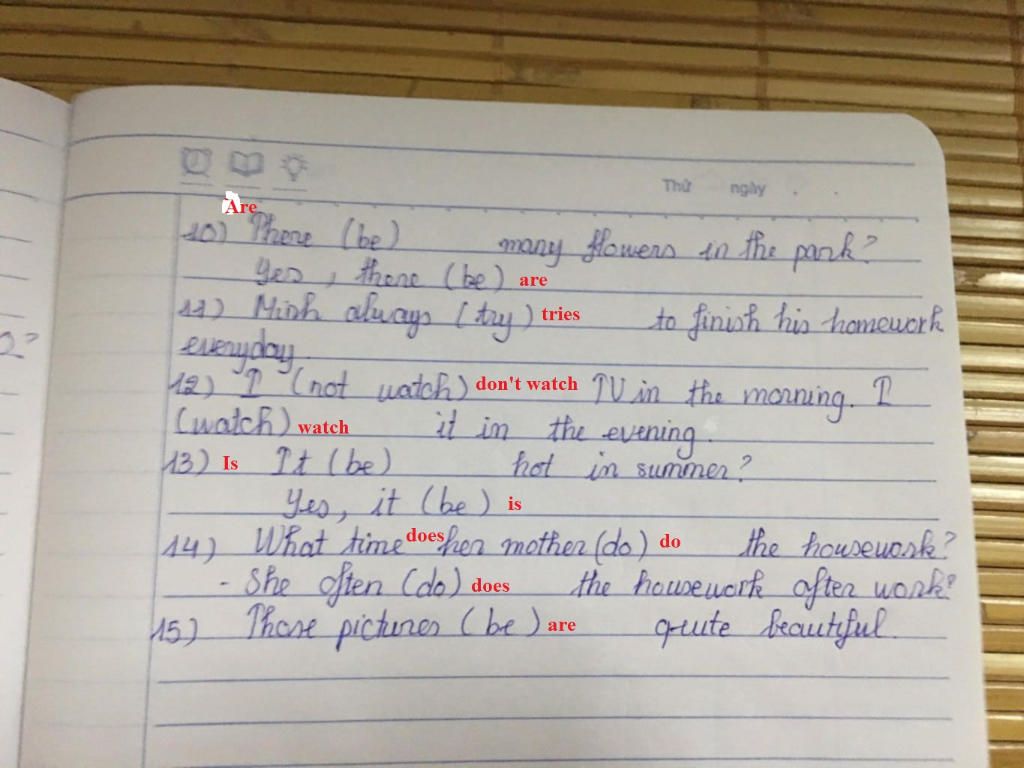 Thứ ngày
Are
10) There (be) many flowers in the park?
Yes, there (be) are
11) Minh always (try) tries to finish his homework
everyday
12) I (not watch) don't watch TV in the morning. I
(watch) watch it in the evening.
13) Is It (be) hot in summer?
Yes, it (be) is
14) What time does her mother (do) do the housework?
- She often (do) does the housework after work?
15) Those pictures (be) are quite beautiful.